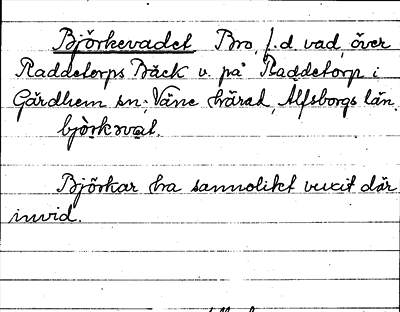 Björkevadet Bro, f.d. vad, över
Raddetorps Bäck v. på Raddetorp i
Gärdhem sn; Väne härad, Älfsborgs län.
björkvat.
Björkar ha sannolikt vuxit där
invid.